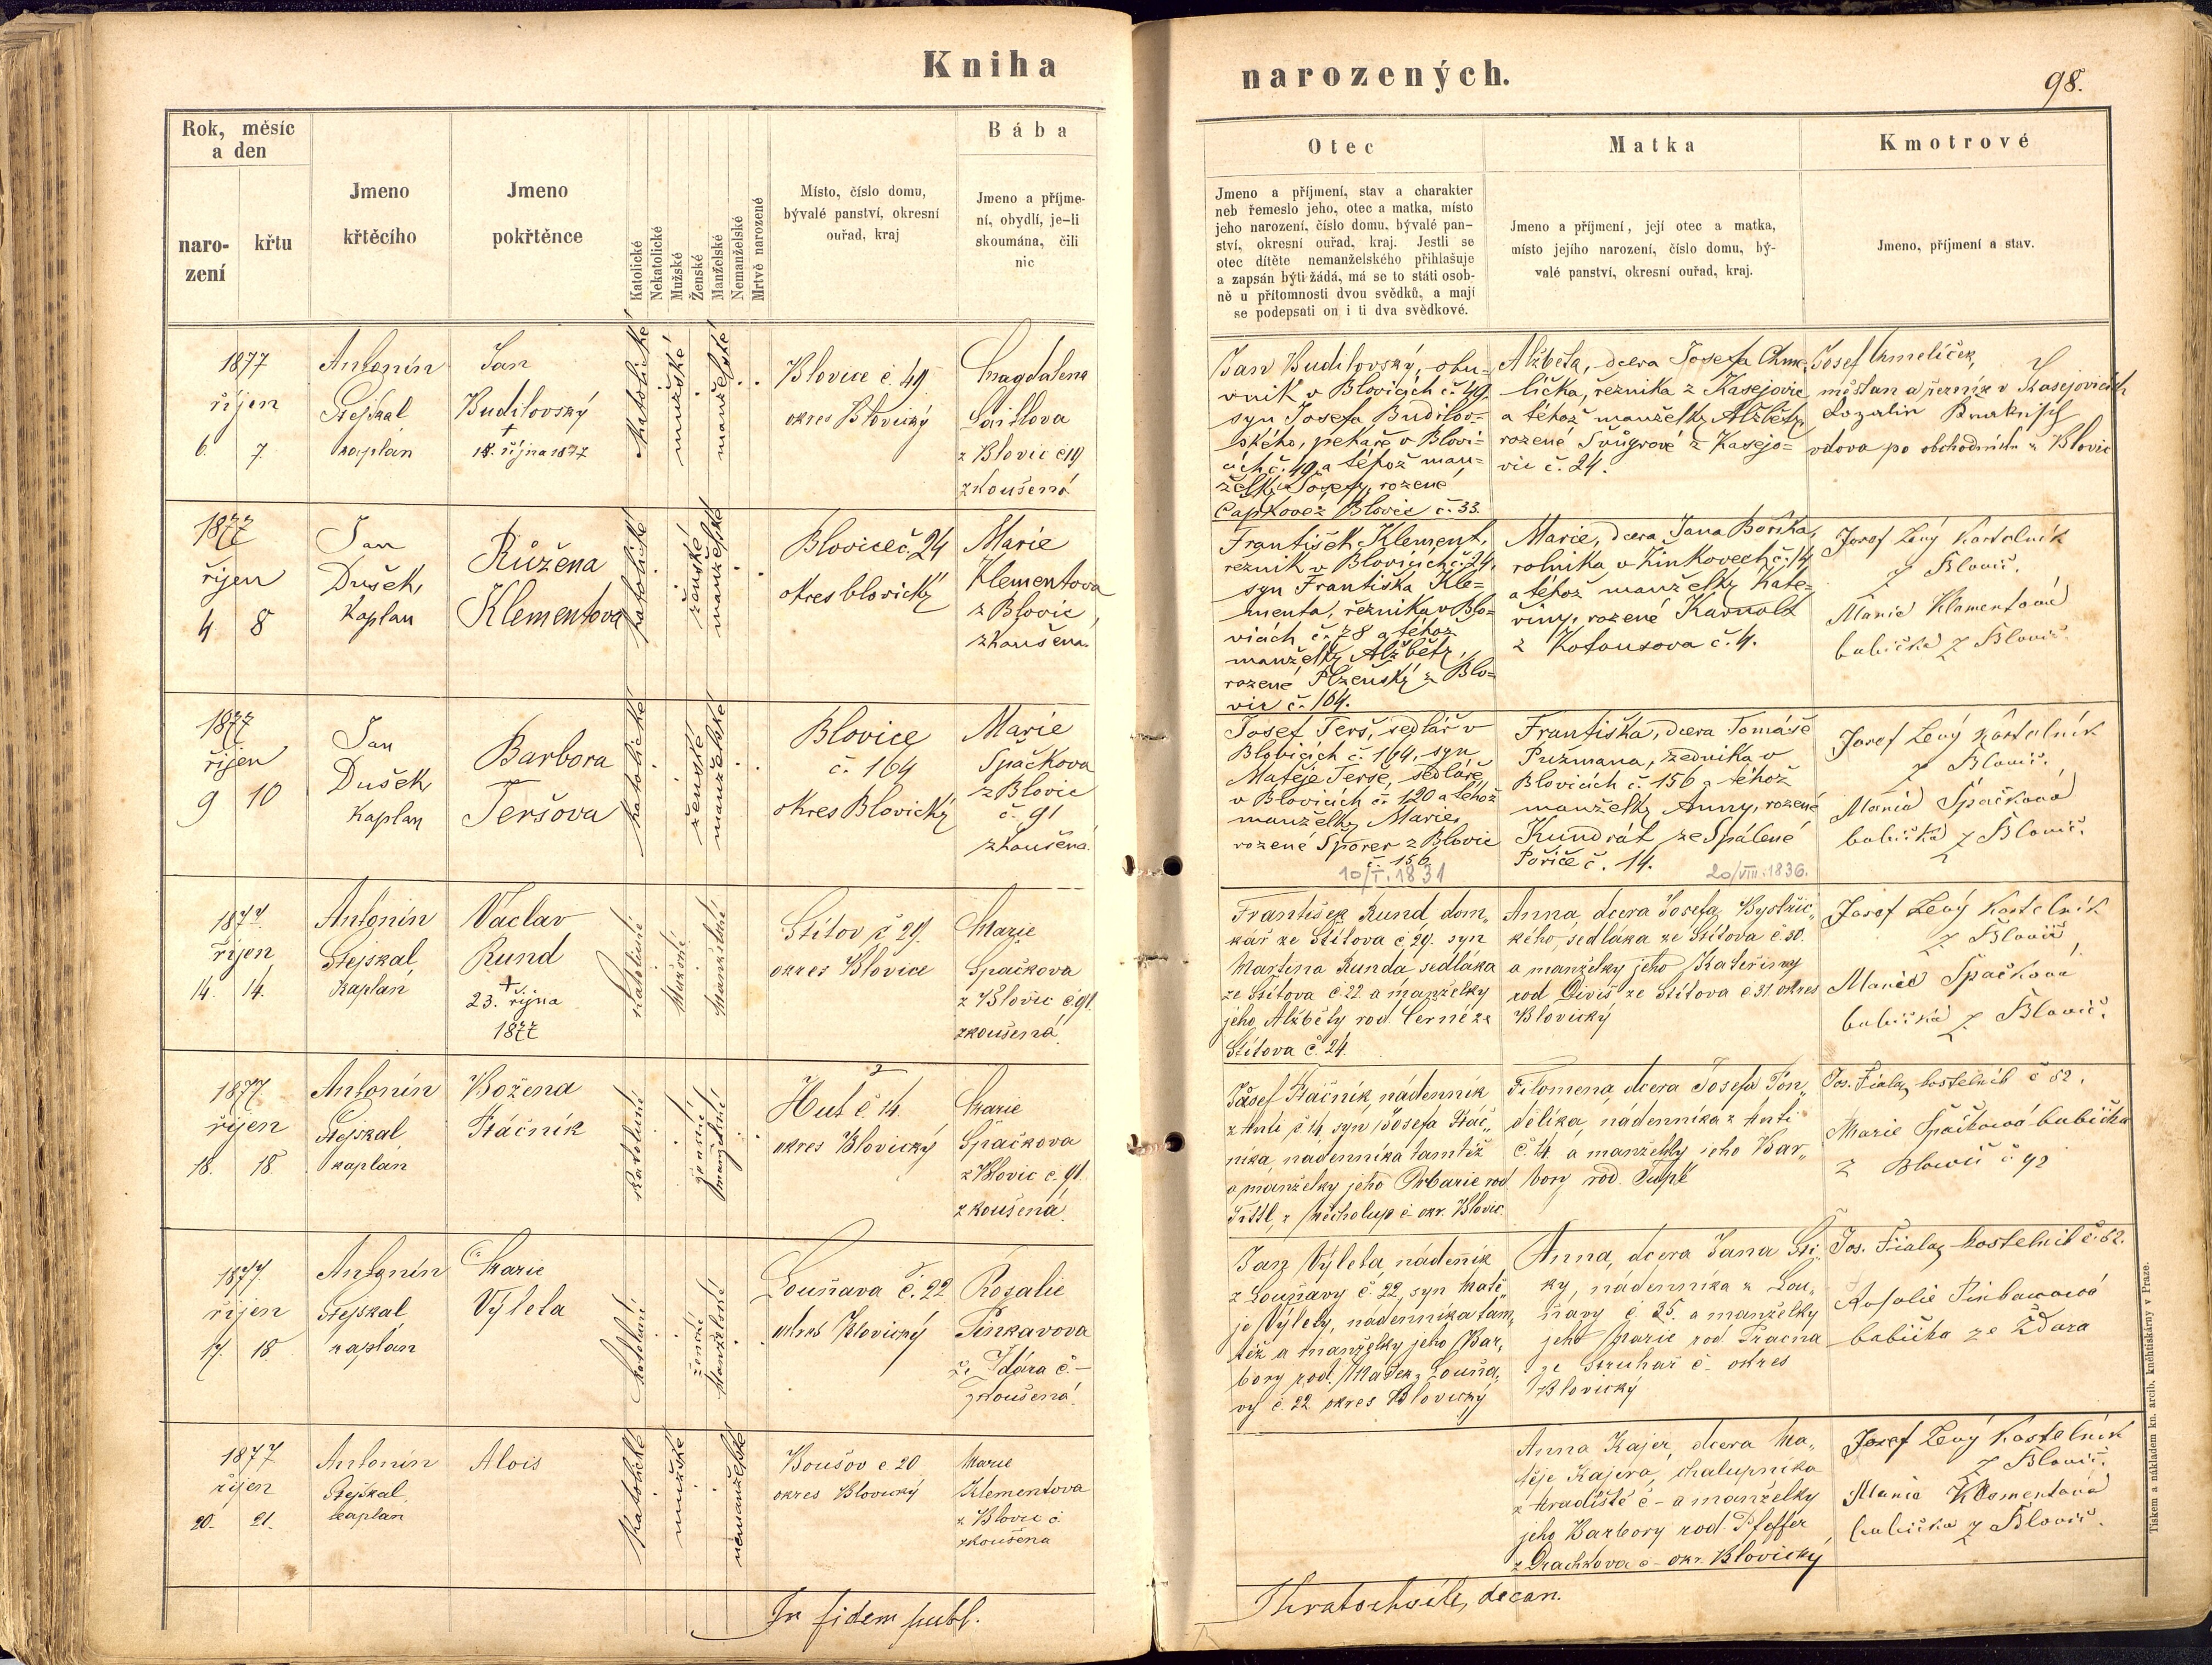 Kniha
narozených.
98.
Rok, měsíc
a den
naro-
zení
křtu
Jmeno
křtěcího
Jmeno
pokřtěnce
Katolické
Nekatolické
Mužské
Ženské
Manželské
Nemanželské
Mrtvě narozené
Místo, číslo domu,
bývalé panství, okresní
ouřad, kraj
Bába
Jmeno a příjme-
ní, obydlí, je-li
skoumána, čili
nic
Otec
Jmeno a příjmení, stav a charakter
neb řemeslo jeho, otec a matka, místo
jeho narození, číslo domu, bývalé pan-
ství, okresní ouřad, kraj. Jestli se
otec dítěte nemanželského přihlašuje
a zapsán býti žádá, má se to státi osob-
ně u přítomnosti dvou svědků, a mají
se podepsati on i ti dva svědkové.
Matka
Jmeno a příjmení, její otec a matka,
místo jejího narození, číslo domu, bý-
valé panství, okresní ouřad, kraj.
Kmotrové
Jmeno, příjmení a stav.
1877
říjen
6. 7
Antonín
Stejskal
kaplán
Jan
Budilovský
+
18. října 1877
katolické
mužské
manželské
Blovice č. 49
okres Blovický
Magdalena
z Blovic č 19
zkoušená
Jan Budilovský, obu-
vník v Blovicích č. 49,
syn Josefa Budilov-
ského, pekaře v Blovi-
cích č. 49 a téhož man-
želky Josefy, rozené
Čapkové z Blovic č. 33.
Alžběta, dcera Josefa Chme-
líčka, řezníka z Kasejovic
a téhož manželky Alžběty
rozené Švůgrové z Kasejo-
vic č. 24.
Josef Chmelíček,
měšťan a řezník v Kasejovicích
vdova po obchodníku z Blovic
1877
říjen
4 8
Jan
Dušek,
kaplan
Růžena
Klementova
katolické
ženské
manželské
Blovice č. 24
okres blovický
Marie
Klementova
z Blovic,
zkoušena
František Klement,
řezník v Blovicích č. 24,
syn Františka Kle-
menta, řezníka v Blo-
vicích č. 78 a téhož
manželky Alžběty,
rozené Plzenský z Blo-
vic č. 104.
Marie, dcera Jana Boříka,
rolníka v Žinkovech č. 14
a téhož manželky Kate-
řiny, rozené Karnolt
z Kotousova č. 4.
Josef Levý kostelník
z Blovic.
Marie Klementová
babička z Blovic.
1877
říjen
9 10
Jan
Dušek
kaplan
Barbora
Teršova
katolické
ženské
manželské
Blovice
č. 164
okres Blovický
Marie
Špačkova
z Blovic
č. 91
zkoušená.
Josef Terš, sedlář v
Blovicích č. 164, syn
Matěje Terše, sedláře
v Blovicích č. 120 a téhož
manželky Marie,
rozené Šporer z Blovic
č. 156
10/I. 1831
Františka, dcera Tomáše
Pužmana, zedníka v
Blovicích č. 156 a téhož
manželky Anny, rozené
Kundrát ze Spálené
Poříčě č. 14.
20/VIII. 1836.
Josef Levý kostelník
z Blovic.
Marie Špačková
babička z Blovic.
1877.
říjen
14. 14.
Antonín
Stejskal
kaplán
Václav
Rund
+
23. října
1877
katolické
Mužské
Manželské
Štítov č 29.
okres Blovice
Marie
Špačkova
z Blovic č 91.
zkoušená
František Rund dom-
kář ze Štítova č 29. syn
Martina Runda sedláka
ze Štítova č. 22 a manželky
jeho Alžběty rod Černé ze
Štítova č. 24.
Anna dcera Josefa Bystřic-
kého, sedláka ze Štítova č 30.
a manželky jeho Kateřiny
rod Diviš ze Štítova č 31 okres
Blovický
Josef Levý kostelník
z Blovic
Marie Špačková
babička z Blovic.
1877
říjen
18. 18
Antonín
Stejskal
kaplán
Božena
Ptáčník
katolické
ženské
manželské
Huť č. 14.
okres Blovický
Marie
Špačkova
z Blovic č. 91.
zkoušená.
Josef Ptáčník, nádenník
z Huti č 14, syn Josefa Ptáč-
níka, nádenníka tamtéž
a manželky jeho Barbory rod
z Měcholup č- okr. Blovic.
Filomena dcera Josefa Pon-
dělíka, nádenníka z Huti
č 14. a manželky jeho Bar-
bory rod. Ťupk
Jos. Fiala, kostelník č 62.
Marie Špačková babička
z Blovic č 92
1877.
říjen
17. 18.
Antonín
Stejskal
kaplán
Marie
Výleta
katolické
ženské
Manželské
Louňava č. 22
okres Blovický
Rosalie
Pinkavova
ze Ždára č -
zkoušená.
Jan Výleta nádeník
z Louňavy č. 22, syn Matě-
je Výlety, nádenníka tam-
též a manželky jeho Bar-
bory rod. z Louňa-
vy č 22 okres Blovický
Anna, dcera Jana
ky, nádenníka z Lou-
ňavy č 35. a manželky
jeho Marie rod.
ze Struhař č- okres
Blovický
Jos. Fiala, kostelník č. 62.
Rosalie Pinkawowá
babička ze Ždara
1877
říjen
20. 21.
Antonín
Stejskal
kaplán
Alois
katolické
mužské
nemanželské
Boušov č 20
okres Blovický
Marie
Klementova
z Blovic č
zkoušena
Anna Kajer, dcera Ma-
těje Kajera, chalupníka
z Hradiště č- a manželky
jeho Barbory rod. Pfeffer
z Drachkova č- okr. Blovický
Josef Levý kostelník
z Blovic.
Marie Klementová
babička z Blovic.
In fidem publ.
Hratochwile, decan.
Tiskem a nákladem kn. arcib. kněhtiskárny v Praze.